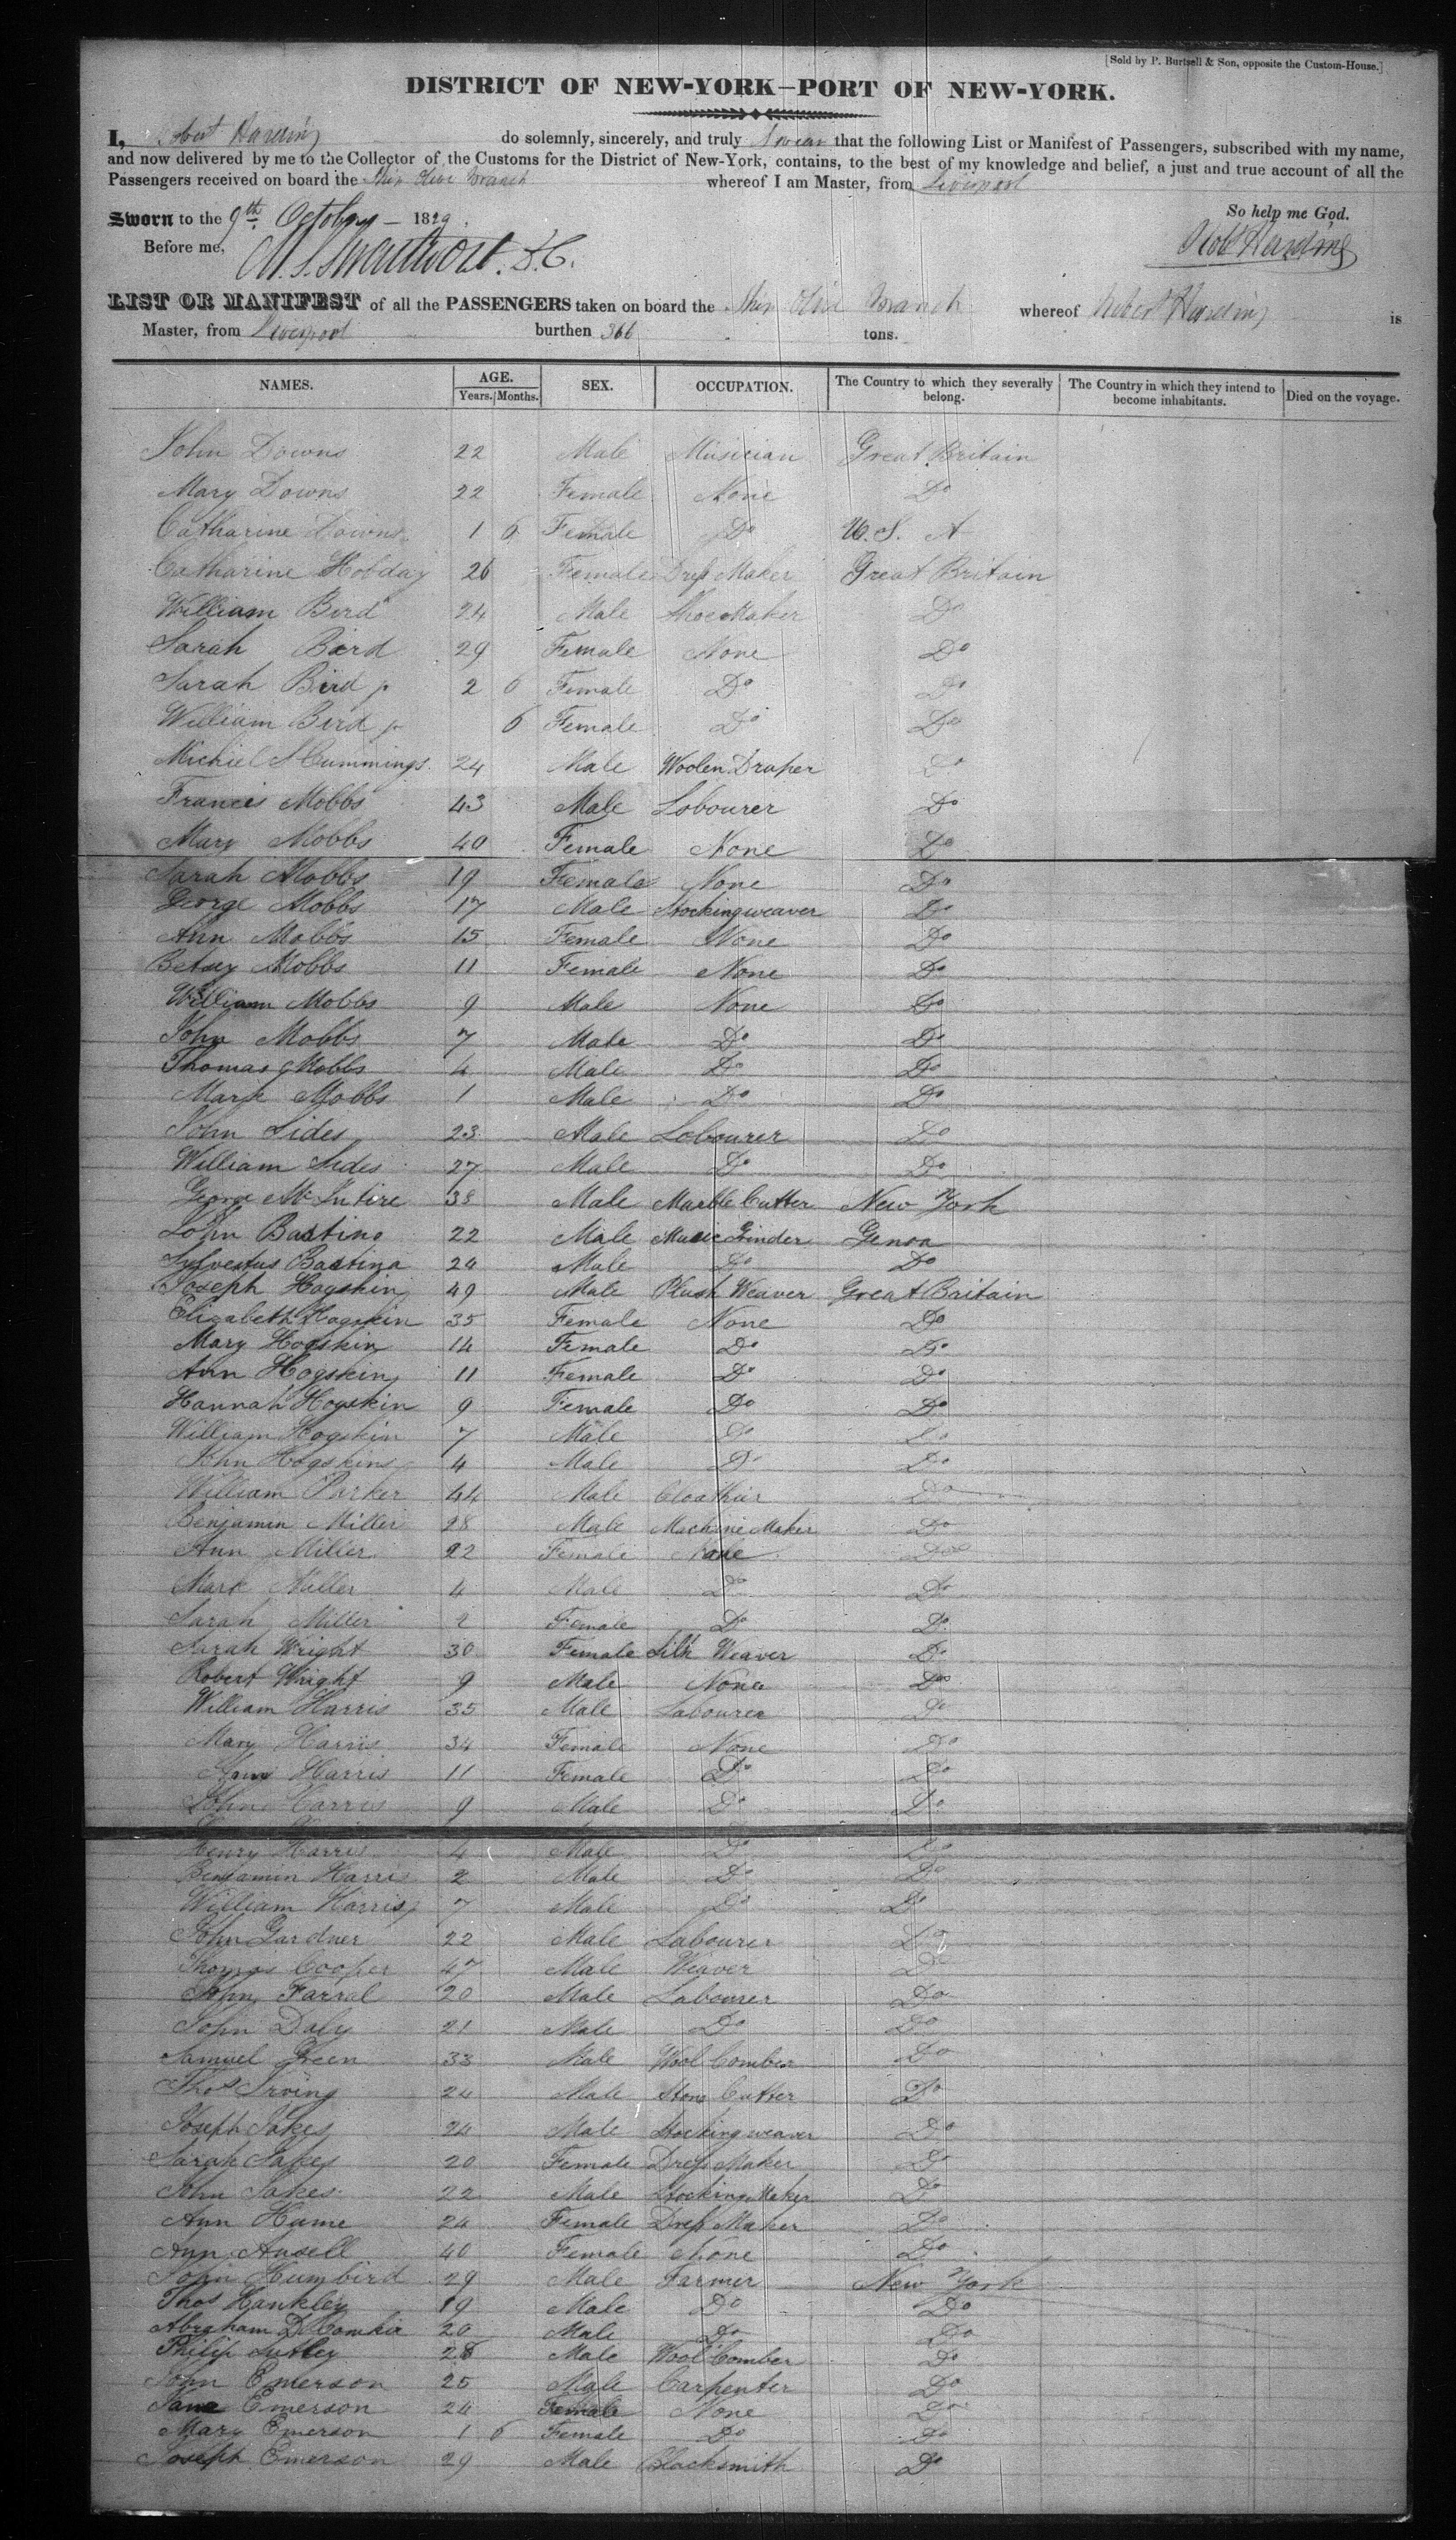 [Sold by P. Burtsell & Son, opposite the Custom-House.]
DISTRICT OF NEW-YORK—PORT OF NEW-YORK.
I, Robert Harding do solemnly, sincerely, and truly Swear that the following List or Manifest of Passengers, subscribed with my name,
and now delivered by me to the Collector of the Customs for the District of New-York, contains, to the best of my knowledge and belief, a just and true account of all the
Passengers received on board the Ship Olive Branch whereof I am Master, from Liverpool
Sworn to the 9th October 1829. So help me God.
Before me, Robt Harding
LIST OR MANIFEST of all the PASSENGERS taken on board the Ship Olive Branch whereof Robert Harding is
Master, from Liverpool burthen 366 tons.
NAMES. AGE. Years. Months. SEX. OCCUPATION. The Country to which they severally belong. The Country in which they intend to become inhabitants. Died on the voyage.
John Downs 22 Male Musician Great Britain
Mary Downs 22 Female None Do
Catharine Downs 1 6 Female Do U. S. A
Catharine Hobday 26 Female Dress Maker Great Britain
William Bird 24 Male Shoe Maker Do
Sarah Bird 29 Female None Do
Sarah Bird jr 2 6 Female Do Do
William Bird jr 6 Female Do Do
Michiel S Cummings 24 Male Woolen Draper Do
Francis Mobbs 43 Male Lobourer Do
Mary Mobbs 40 Female None Do
Sarah Mobbs 19 Female None Do
George Mobbs 17 Male Stockingweaver Do
Ann Mobbs 15 Female None Do
Betsey Mobbs 11 Female None Do
William Mobbs 9 Male None Do
John Mobbs 7 Male Do Do
Thomas Mobbs 4 Male Do Do
Mark Mobbs 1 Male Do Do
John Sides 23 Male Lobourer Do
William Sides 27 Male Do Do
George McIntire 38 Male Marble Cutter New York
John Bastino 22 Male Music Grinder Genoa
Sylvestus Bastina 24 Male Do Do
Joseph Hogskin 49 Male Plush Weaver Great Britain
Elizabeth Hogskin 35 Female None Do
Mary Hogskin 14 Female Do Do
Ann Hogskin 11 Female Do Do
Hannah Hogskin 9 Female Do Do
William Hogskin 7 Male Do Do
John Hogskins 4 Male Do Do
William Parker 44 Male Cloathier Do
Benjamin Miller 28 Male Machine Maker Do
Ann Miller 22 Female None Do
Mark Miller 4 Male Do Do
Sarah Miller 2 Female Do Do
Sarah Wright 30 Female Silk Weaver Do
Robert Wright 9 Male None Do
William Harris 35 Male Labourer Do
Mary Harris 34 Female None Do
Ann Harris 11 Female Do Do
John Harris 9 Male Do Do
Henry Harris 4 Male Do Do
Benjamin Harris 2 Male Do Do
William Harris jr 7 Male Do Do
John Gardner 22 Male Labourer Do
Thomas Cooper 47 Male Weaver Do
John Farral 20 Male Labourer Do
John Daly 21 Male Do Do
Samuel Green 33 Male Wool Comber Do
Thos Irving 24 Male Stone Cutter Do
Joseph Jakes 24 Male Stockingweaver Do
Sarah Jakes 20 Female Dress Maker Do
John Jakes 22 Male Stocking Maker Do
Ann Hume 24 Female Dress Maker Do
Ann Ansell 40 Female None Do
John Humbird 29 Male Farmer New York
Thos Hankley 19 Male Do Do
Abraham D 20 Male Do Do
Philip Sutley 28 Male Wool Comber Do
John Emerson 25 Male Carpenter Do
Jane Emerson 24 Female None Do
Mary Emerson 1 6 Female Do Do
Joseph Emerson 29 Male Blacksmith Do